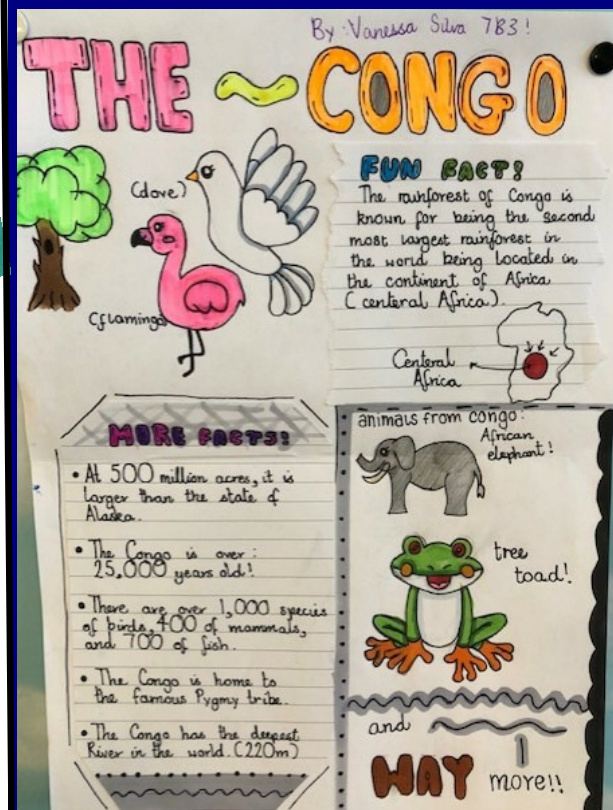 By: Vanessa Silva 7B3!
THE ~ CONGO
(dove)
(flamingo)
FUN FACT!
The rainforest of Congo is
known for being the second
most largest rainforest in
the world being located in
the continent of Africa
(centeral Africa).
Centeral
Africa
MORE FACTS!
• At 500 million acres, it is
larger than the state of
Alaska.
• The Congo is over :
25,000 years old!
• There are over 1,000 species
of birds, 400 of mammals,
and 700 of fish.
• The Congo is home to
the famous Pygmy tribe.
• The Congo has the deepest
River in the world. (220m)
animals from congo:
African
elephant!
tree
toad!
and
WAY more!!